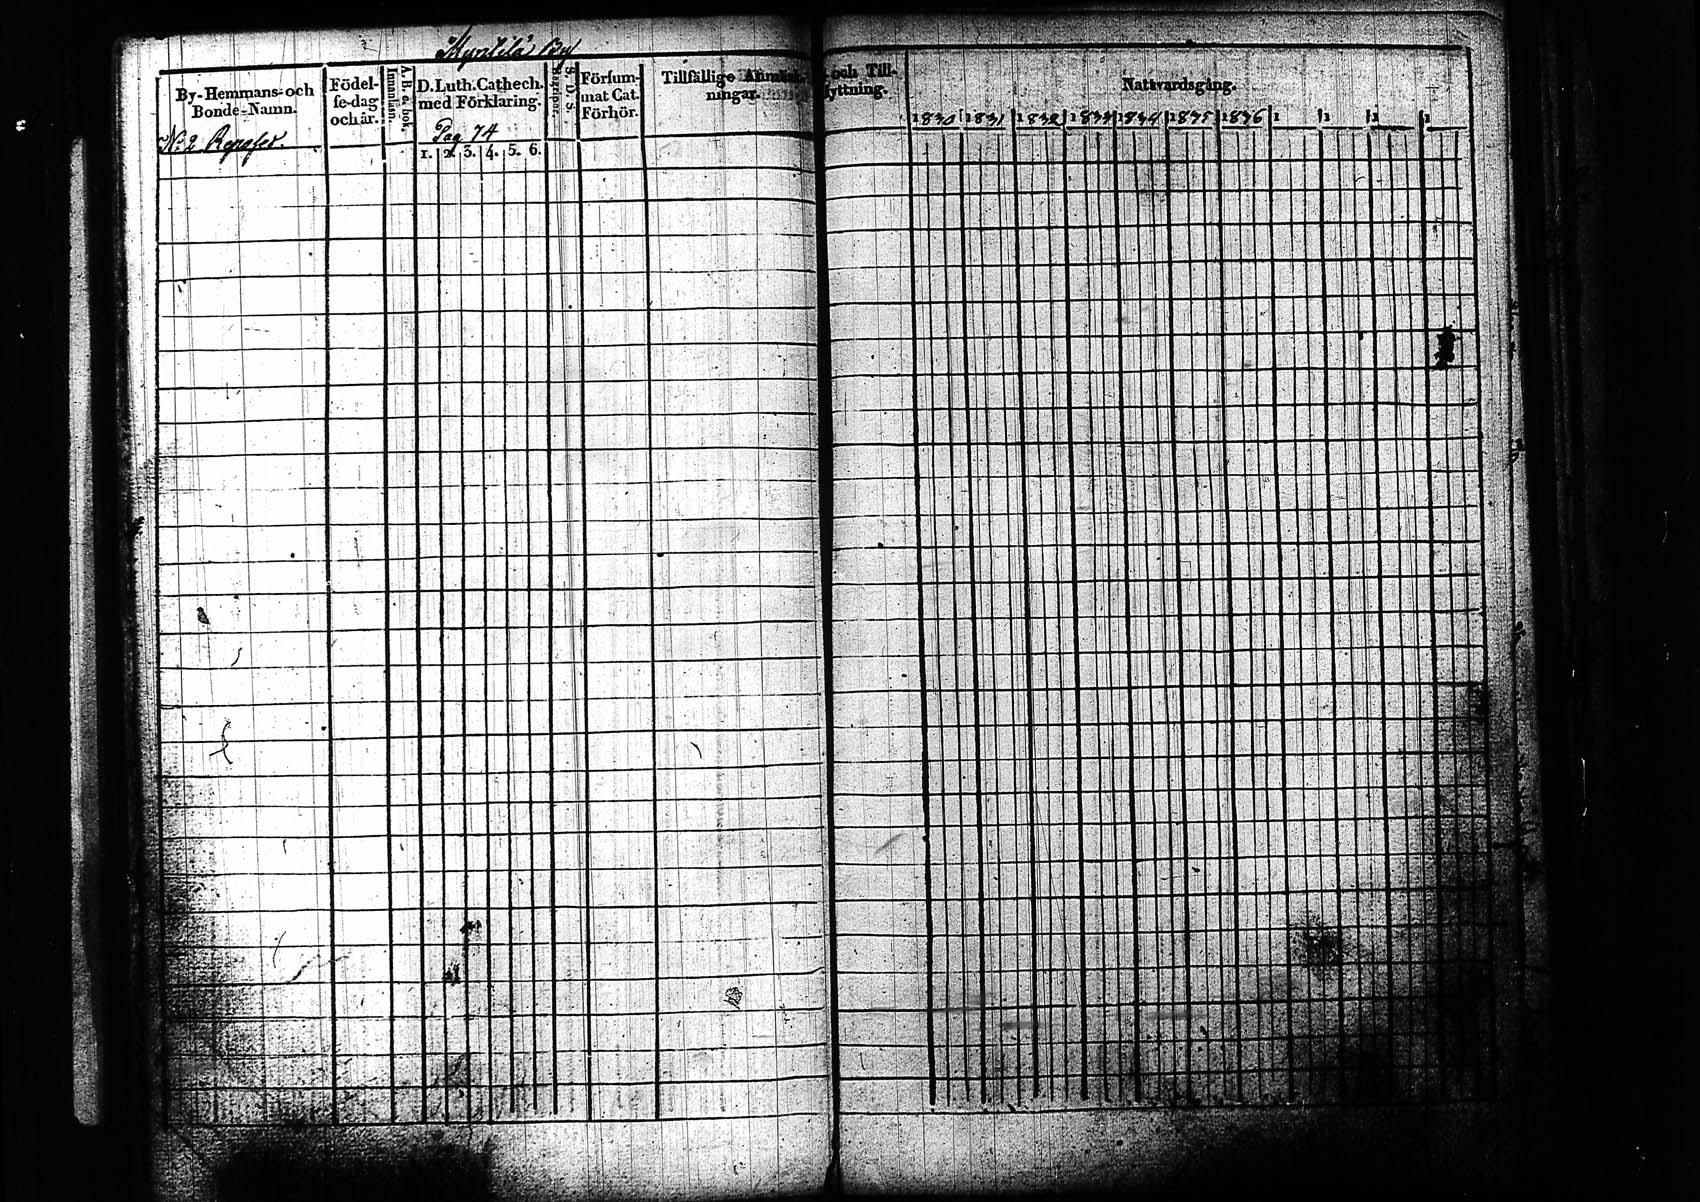 Myntilä by
By-Hemmans- och
Bonde-Namn.
Födel-
se-dag
och år.
A. B. c bok,
Innanläsn.
D. Luth. Cathech.
med Förklaring.
Pag 74
1. 2. 3. 4. 5. 6.
S. D. S.
Försum-
mat Cat.
Förhör.
Tillfällige Anmärk-
ningar.
och Till-
flyttning.
Nattvardsgång.
1830 1831 1832 1833 1834 1835 1836 1 1 1 1
N:o 2